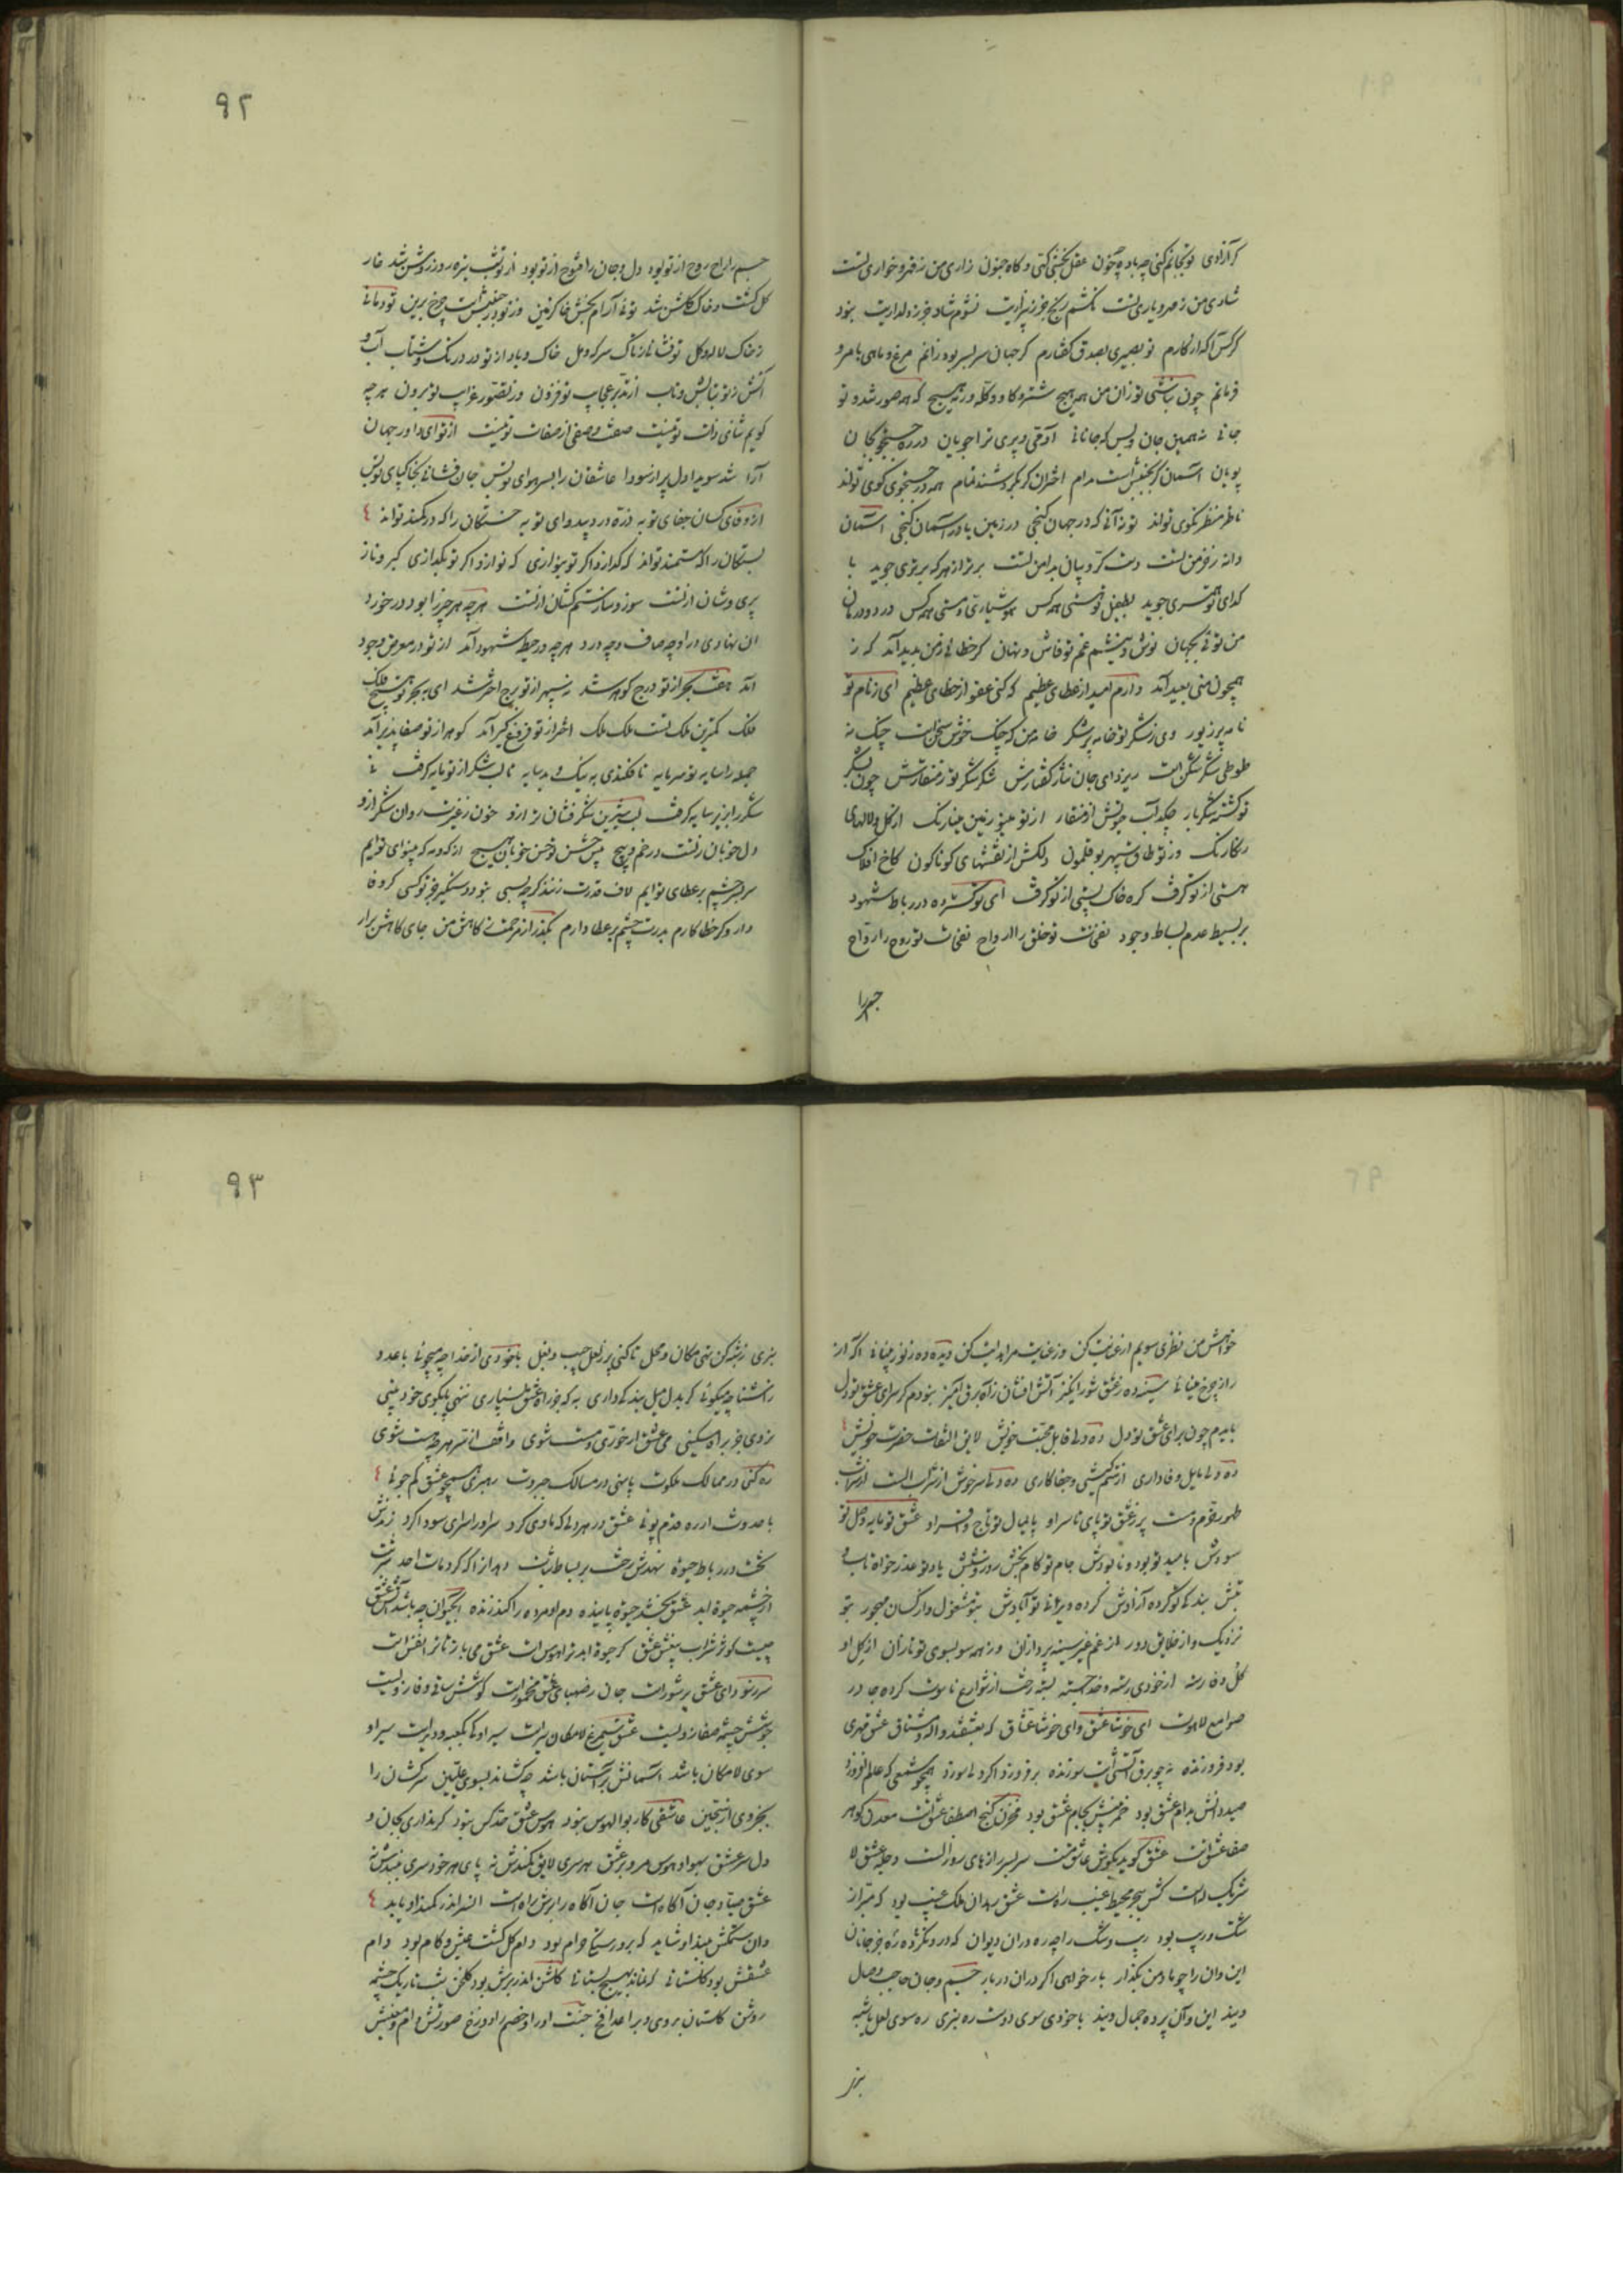 کر آزادی تو نجاتم کنی چه باده چه خون عقل بخشی کنی و کاه جنون زاری من ز قهر و خواری تست
شادی من ز مهر و یاری تست نکشم رنج جز ز بیزاریت نشوم شاد جز ز دلداریت نبود
کر کس آکه از کارم تو بصیری بصدق کفتارم کر جهان سر بسر بود رانم مرغ و ماهی بامر و
فرمانم چون نباشی تو زان من همه هیچ شتر و کاو و کله و رمه هیچ که همه صور شد و تو
جانی نه همین جان و بس که جانانی آدمی و پری ترا جویان در ره جستجوی کان
پویان آسمان کر بجنبش است مدام اختران کر بکردشند تمام همه در جستجوی کوی تواند
ناظر منظر نکوی تواند تو نه آنی که در جهان کنجی در زمین یا در آسمان کنجی آسمان
دانه ز خرمن تست دست کروبیان بدامن تست برتر از هر که برتری جوید با
کدای تو همسری جوید بطفیل تو هستی همه کس هوشیاری و مستی همه کس درد و درمان
من توئی بجهان نوش و نیشم غم تو فاش و نهان کر خطائی ز من پدید آمد که ز
همچون منی بعید آمد دارم امید از عطای عظیم که کنی عفو از خطای عظیم ای ز نام تو
نامه پر زیور وی ز شکر تو خامه پر شکر خامه من که چنک خوش سخن است چنک نه
طوطی شکر شکن است ریزد ای جان نثار کفتارش شکر شکر تو ز منقارش چون بشکر
تو کشت شکر بار چکد آب حیوتش از منقار از تو مینو زمین مینا رنک از کل و لالهای
رنکارنک وز تو طاق سپهر بوقلمون دلکش از نقشهای کوناکون کاخ افلاک
هستی از تو کرفت کره خاک پستی از تو کرفت ای تو کسترده در رباط شهود
بر بسیط عدم بساط وجود نفخت تو خلق را ارواح نفخات تو روح را ارواح
جسم را
۹۲
جسم را راح روح از تو بود دل و جان را فتوح از تو بود از تو شب تیره روز روشن شد خار
کل کشت و خاک کلشن شد توئی آرام بخش خاک زمین وز تو در جنبش است چرخ برین تو دمانی
ز خاک لاله و کل تو فشانی ز تاک سرکه و مل خاک و باد از تو در درنک و شتاب آب و
آتش ز تو بتابش و تاب از تدبر عجایب تو فزون وز تصور غرایب تو برون هر چه
کویم ثنای ذات تو نیست صفت و صفی از صفات تو نیست از تو ای داور جهان
آرا شد سویدا دل پر از سودا عاشقان را بسر هوای تو بس جان فشانی بخاکپای تو بس
از وفای کسان جفای تو به ذره درد بیدوای تو به خستکان را که در کمند تواند
بستکان را که مستمند تواند که کدازد اکر تو بنوازی که نوازد اکر تو بکدازی کبر و ناز
پری وشان از تست سوز و ساز ستم کشان از تست هر چه هر چیز را بود در خورد
آن نهادی در او چه صاف و چه درد هر چه در حیطه شهود آمد از تو در معرض وجود
آمد هفت بحر از تو درج کوهر شد نه سپهر از تو برج اختر شد ای به بحر تو هیچ فلک
فلک کمترین ملک تست ملک ملک اختر از تو فروغ کیر آمد کوهر از تو صفا پذیر آمد
جمله را سایه تو سرمایه نافکندی به نیک و بد سایه تا لب شکر از تو مایه کرفت نی
شکر را بزیر سایه کرفت لب شیرین شکر فشان ز تو ازو خون ز غیرت روان شکر ازو
دل خوبان ز تست در خم و پیچ پیش حسن تو حسن خوبان هیچ از که و مه که بینوای توایم
سر بسر چشم بر عطای توایم لاف قدرت زنند کرچه بسی نبود دستکیر جز تو کسی کر وفا
دار و کر خطاکارم بدرت چشم بر عطا دارم بکذر از مرحمت ز کاهش من جای کاهش برآر
خواهش من نظری سویم از عنایت کن وز عنایت مرا هدایت کن دیده ده ز نور بینائی اکه از
راز چرخ مینائی سینه ده ز عشق شور انکیز آتش افشان ز آه برق آمیز نبودم کر سرای عشق تو دل
بایدم چون برای عشق تو دل ده دلی قابل محبت خویش لایق التفات حضرت خویش
ده دلی مایل وفاداری از ستم کیشی و جفاکاری ده دلی سرخوش از شراب الست از شراب
طهور خرم و مست پر ز عشق تو پای تا سر او پایمال تو تاج و افسر او عشق تو مایه وصل تو
سودش با میر تو بود و نابودش جام تو کام بخش روز و شبش یاد تو عذر خواه تاب و
تبش بنده که تو کرده آزادش کرده ویرانه تو آبادش بتو مشغول و از کسان مهجور بتو
نزدیک و از خلایق دور از غم غیر سینه پردازان وز همه سو بسوی تو تازان از کل او
کل وفا رسته از خودی رسته و خدا جسته بسته رخت از شوارع ناسوت کرده جا در
صوامع لاهوت ای خوشا عشق و ای خوشا عشاق که بعشقند واله و مشتاق عشق مهری
بود فروزنده نه چو برق آتشی است سوزنده برفروزد اکر دلی سوزد همچو شمعی که عالم افروزد
صید دانش بدام عشق بود خم بینش بجام عشق بود مخزن کنج اصطفا عشق است معدن کوهر
صفا عشق است عشق کوید بکوش عاشق مست سر بسر رازهای روز الست وجله عشق لا
شریک له است کش بحر محیط غیب ره است عشق ربدان ملک غیب بود که مبرا ز
شک و ریب بود ریب و شک را چه ره در آن دیوان که درو نکذرد ره جز جانان
این و آن را چو باد من بکذار بار خواهی اکر در آن دربار جسم و جان حاجب وصال
ویند این و آن پرده جمال ویند با خودی سوی دوست ره نبری ره سوی لعل با شبه
نبر
۹۳
نبری ز شبه کن تهی مکان و محل تا کنی پر ز لعل جیب و بغل با خودی از خدا چه میجوئی با عدو
ز آشنا چه میکوئی کر بدل میل بندکی داری به که جز راه عشق نسپاری ننهی پا بکوی خود بینی
نروی جز براه مسکینی می عشق ار خوری و مست شوی واقف از سر هر چه هست شوی
ره کنی در ممالک ملکوت پا نهی در مسالک جبروت رهبری همچو عشق کم جوئی
با حدوث ار ره قدم پوئی عشق در هر دلی که ماوی کرد سر او را سرای سودا کرد زندش
تخت در رباط حیوة نهدش رخت بر بساط ثبات دهد از اکر کرد مات احد شربت
از چشمه حیوة ابد عشق بخشد حیوة پاینده دم او مرده را کند زنده آب حیوان چه باشد آتش عشق
چیست کوثر شراب بیغش عشق کر حیوة ابد ترا هوس است عشق می باز تا ترا نفس است
سر ز سودای عشق پر شور است جان ز صهبای عشق مخمور است کوشش ساقی وفا زویست
جوشش چشمه صفا زویست عشق سیمرغ لامکان سیر است سیر او نی بکعبه و دیر است سیر او
سوی لامکان باشد آسمانش بر آستان باشد چه کشاند بسوی علیین سرکشان را
بجز وی از سجین عاشقی کار بوالهوس نبود هوس عشق حد کس نبود کر بنداری بجان و
دل سر عشق بهوا و هوس مرو بر عشق هر سری لایق کمندش نه پای هر خود سری ببندش نه
عشق صیاد جان آکاه است جان آکاه را برش راه است آنسر اندر کمند او باید
وان ستمکش ببند او شاید که بر او رستکی حرام بود دام کل کشت عیش و کام بود دام
عشقش بود کلستانی که نماند بهیچ بستانی کلشن اندر برش بود کلخن شب تاریک چشمه
روشن کلستان بروی و بر اعدا فخ جنت او را و خصم را دوزخ صورتش دام و معنیش